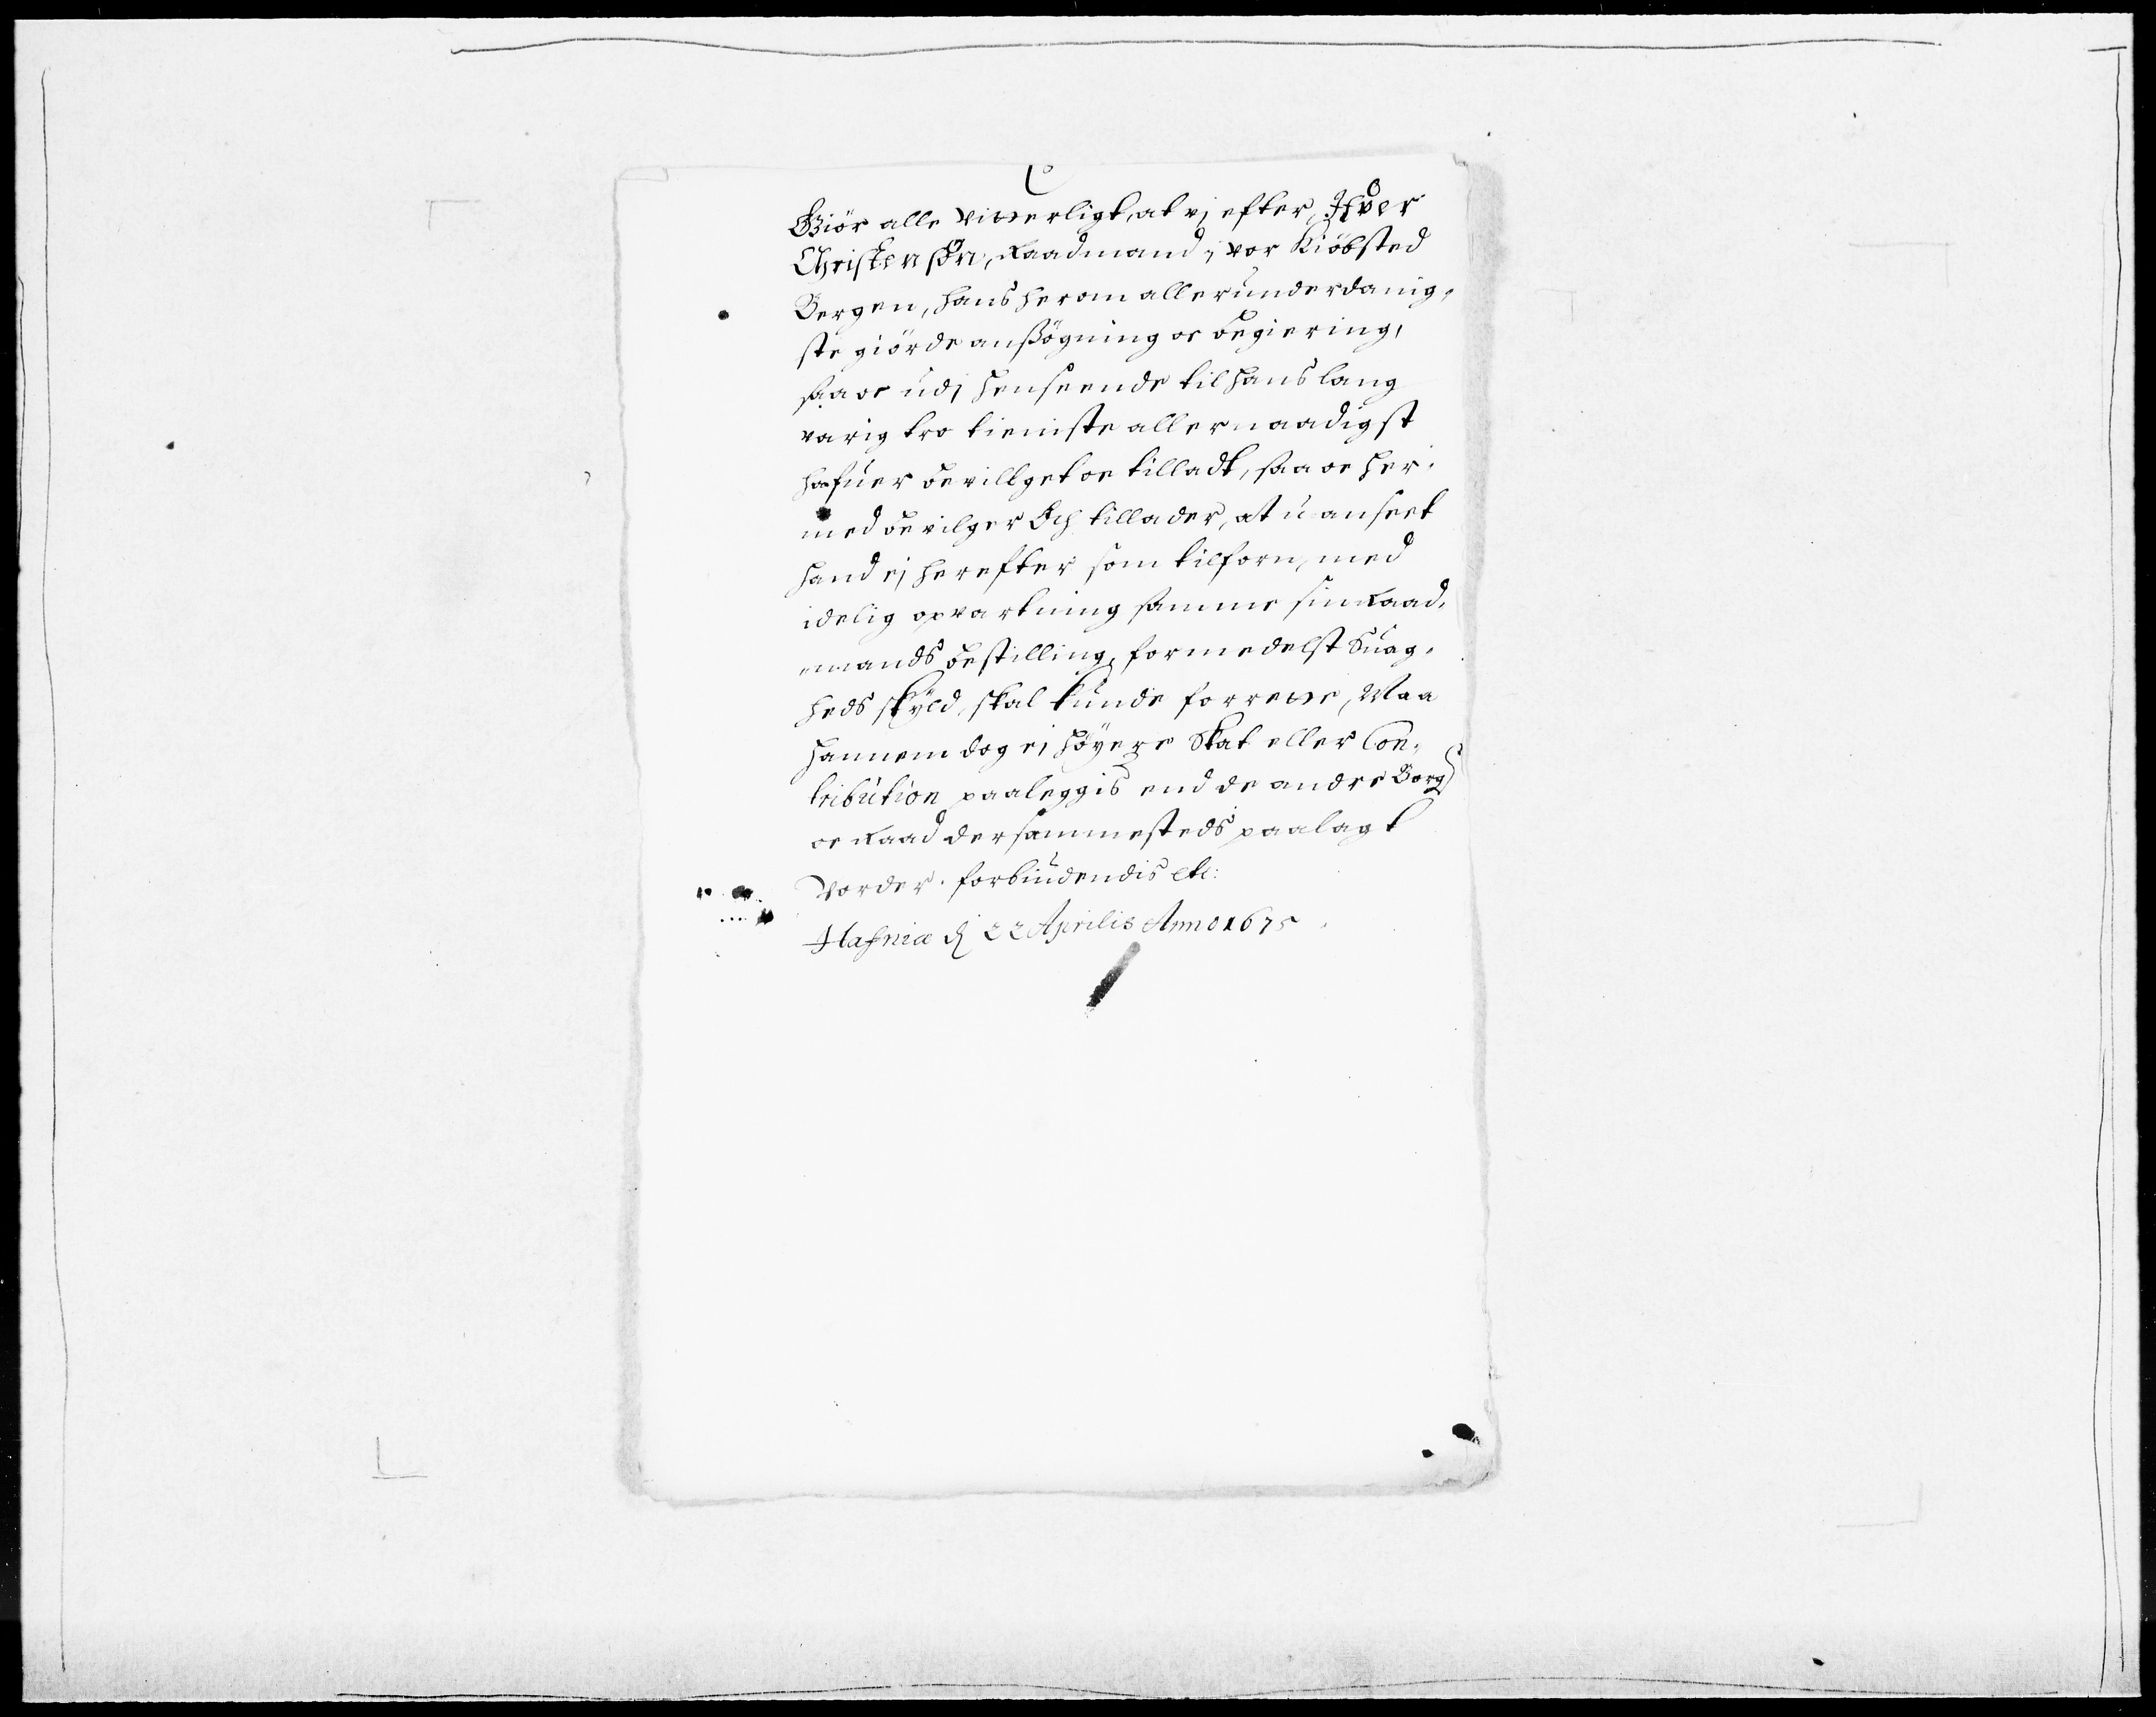 C
Giör alle vitterligt, at vj efter Ifver
Christensön, Raadmand i vor Kiöbsted
Bergen, hans herom allerunderdanig-
ste giörde ansßögning oc begiering,
saa oc udj henseende til hans lang
varig tro tieniste allernaadigst
hafuer bevillget oc tilladt, saa oc her-
med bevilger Och tillader, at u-anseet
hand ej herefter som tilforn, med
idelig opvartning samme sin Raad-
mands bestilling, formedelst Suag-
heds skyld, skal kunde forrette, Maa
hannem dog ej höyere Skat eller Con-
tribution paaleggis end de andre Borg
oc Raad dersammesteds paalagt
vorder. forbiudendis etc:
Hafniæ d 22 Aprilis Anno 1675